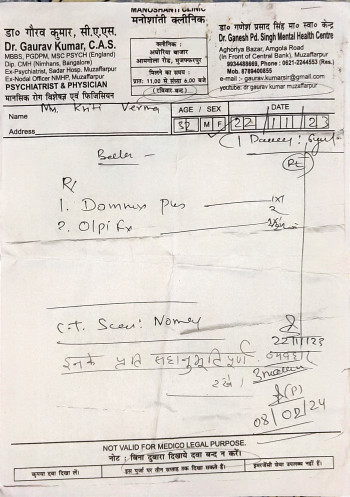 MANOSHANTI CLINIC
मनोशांती क्लीनिक
डा० गौरव कुमार, सी.ए.एस.
Dr. Gaurav Kumar, C.A.S.
MBBS, PGDPM, MSC PSYCH (England)
Dip. CMH (Nimhans, Bangalore)
Ex-Psychiatrist, Sadar Hosp. Muzaffarpur
Ex-Nodal Officer NMHP, Muzaffarpur
PSYCHIATRIST & PHYSICIAN
मानसिक रोग विशेषज्ञ एवं फिजिसियन
क्लीनिक :
अघोरिया बाजार
आमगोला रोड, मुजफ्फरपुर
मिलने का समय :
प्रातः 11.00 से संध्या 6.00 बजे
(रविवार बन्द)
डा० गणेश प्रसाद सिंह मा० स्वा० केन्द्र
Dr. Ganesh Pd. Singh Mental Health Centre
Aghoriya Bazar, Amgola Road
(In Front of Central Bank), Muzaffarpur
9934488969, Phone : 0621-2244553 (Res.)
Mob. 8789406855
e-mail :- gauravkumarsir@gmail.com
youtube: dr gaurav kumar muzaffarpur
Name Verma
Address
AGE / SEX DATE
32 M F 22 11 23
Better
R/
1. Domnex Plus
2.
C.T. Scan:
22/11/23
इनके प्रति सहानुभूति पूर्ण व्यवहार
रखें।
(P)
03/02/24
NOT VALID FOR MEDICO LEGAL PURPOSE.
नोट : बिना दुबारा दिखाये दवा बन्द न करें।
कृपया दवा दिखा लें। इस पुर्जा पर तीन सप्ताह तक दिखा सकते हैं। इमरजेंसी सेवा उपलब्ध नहीं है।